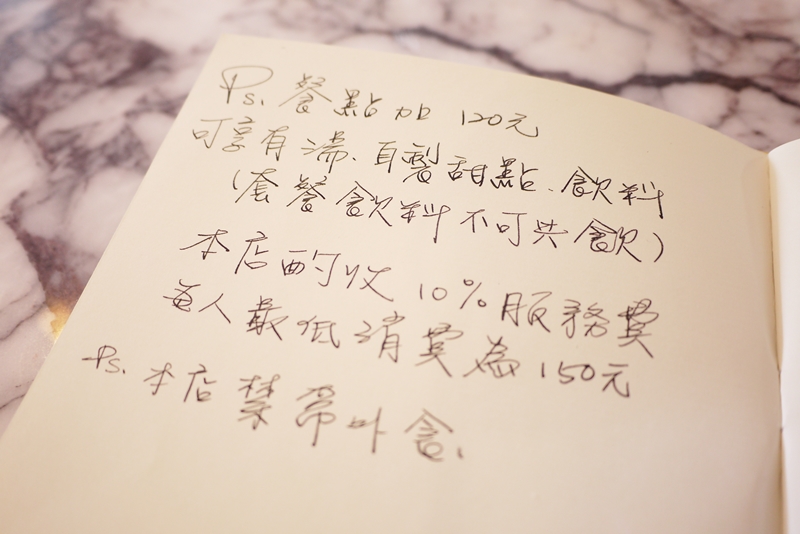 Ps. 餐點加 120元
可享有湯、自製甜點、飲料
(套餐飲料不可共飲)
本店酌收 10% 服務費
每人最低消費為150元
Ps. 本店禁帶外食.